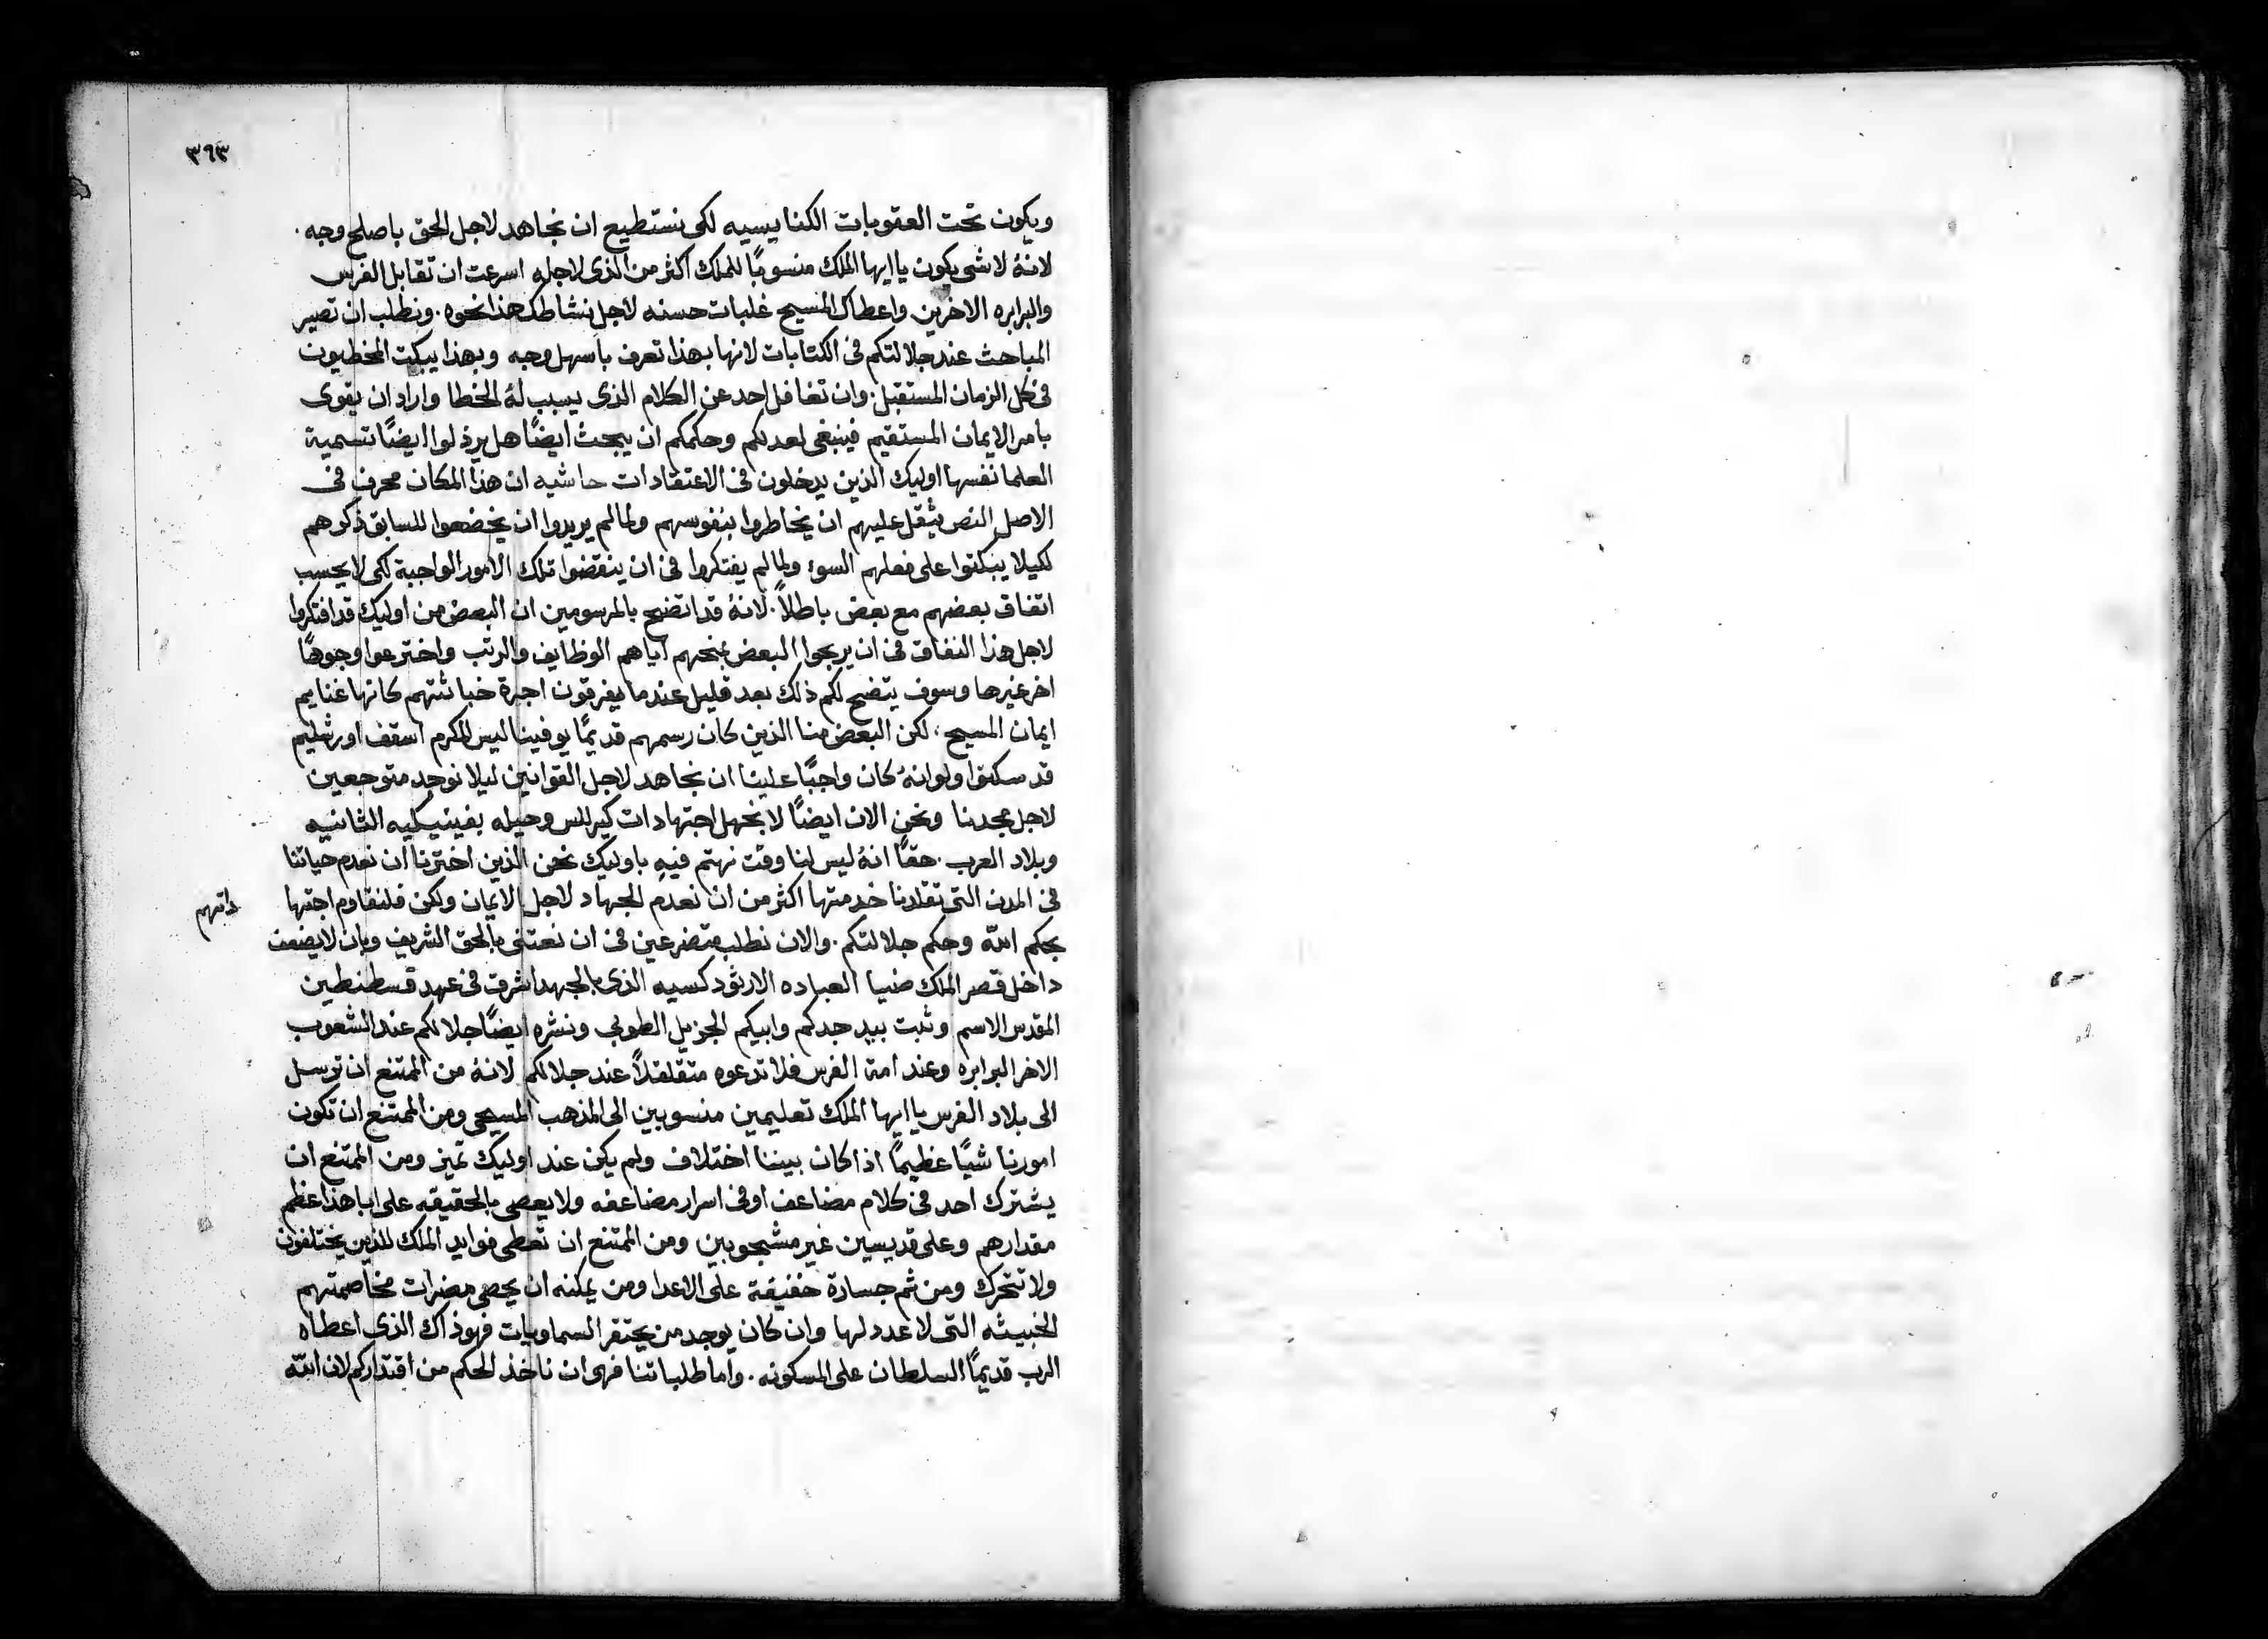 ٣٦٣
ويكون تحت العقوبات الكنايسيه لكى نستطيع ان نجاهد لاجل الحق باصلح وجه .
لانهُ لا شى يكون يا ايها الملك منسوبًا للملك اكثر من الذى لاجله اسرعت ان تقابل الفرس
والبرابره الاخرين واعطاك المسيح غلبات حسنه لاجل نشاطك هذا نحوه . ونطلب ان تصير
المباحث عند جلالتكم فى الكتابات لانها بهذا تعرف باسهل وجه وبهذا يبكت المخطيون
فى كل الزمان المستقبل . وان تغافل احد عن الكلام الذى يسبب لهُ الخطا واراد ان يقوى
بامر الايمان المستقيم فينبغى لعدلكم وحكمكم ان يبحث ايضًا هل يرذلوا ايضًا تسمية
العلما نفسها اوليك الذين يدخلون فى الاعتقادات حاشيه ان هذا المكان محرف فى
الاصل النص يثقل عليهم ان يخاطروا بنفوسهم ولما لم يريروا ان يخضعوا للسابق ذكرهم
لكيلا يبكتوا على فعلهم السوء ولما لم يفتكروا فى ان ينقضوا تلك الامور الواجبة لكى لا يحسب
اتفاق بعضهم مع بعض باطلاً . لانهُ قد اتضح بالمرسومين ان البعض من اوليك قد افتكروا
لاجل هذا النفاق فى ان يربحوا البعض بمنحهم اياهم الوظايف والرتب واخترعوا وجوهًا
اخر غيرها وسوف يتضح لكم ذلك بعد قليل عندما يفرقون اجرة خباثتهم كانها غنايم
ايمان المسيح . لكن البعض منا الذين كان رسمهم قديمًا يوفيناليس المكرم اسقف اورشليم
قد سكتوا ولو انهُ كان واجبًا علينا ان نجاهد لاجل القوانين ليلا نوجد متوجعين
لاجل مجدنا ونحن الان ايضًا لا نجهل اجتهادات كيرللس وحيله بفينيكيه الثانيه
وبلاد العرب . حقًا انهُ ليس لنا وقت نهتم فيه باوليك نحن الذين اخترنا ان نعدم حياتنا
فى المدن التى تقلدنا خدمتها اكثر من ان نعدم الجهاد لاجل الايمان ولكن فلنقاوم اجتها
داتهم
بحكم الله وحكم جلالتكم . والان نطلب متضرعين فى ان نعتنى بالحق الشريف وبان لا يضمن
داخل قصر الملك ضيا العباده الارثودكسيه الذى بالجهد اشرق فى عهد قسطنطين
المقدس الاسم وثبت بيد جدكم وابيكم الجزيل الطوبى ونشره ايضًا جلالكم عند الشعوب
الاخر البرابره وعند امة الفرس فلا تدعوه متقلقلاً عند جلالكم لانهُ من الممتنع ان ترسل
الى بلاد الفرس يا ايها الملك تعليمين منسوبين الى المذهب المسيحى ومن الممتنع ان تكون
امورنا شيًا عظيمًا اذا كان بيننا اختلاف ولم يكن عند اوليك تميز ومن الممتنع ان
يشترك احد فى كلام مضاعف او فى اسرار مضاعفه ولا يعصى بالحقيقه على ابا هذا عظم
مقدارهم وعلى قديسين غير مشجوبين ومن الممتنع ان تعطى فوايد الملك للذين يختلفون
ولا تتحرك ومن ثم جسارة خفيفة على الاعدا ومن يمكنه ان يحصى مضرات مخاصمتهم
الخبيثه التى لا عدد لها وان كان يوجد من يحتقر السماويات فهو ذاك الذى اعطاه
الرب قديمًا السلطان على المسكونه . واما طلباتنا فهى ان ناخذ الحكم من اقتداركم لان الله